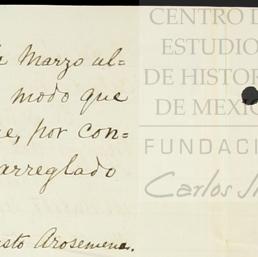 Marzo al-
modo que
e, por con-
arreglado
sto Arosemena.
CENTRO D
ESTUDIO
DE HISTOR
DE MEXIC
FUNDACI
Carlos S